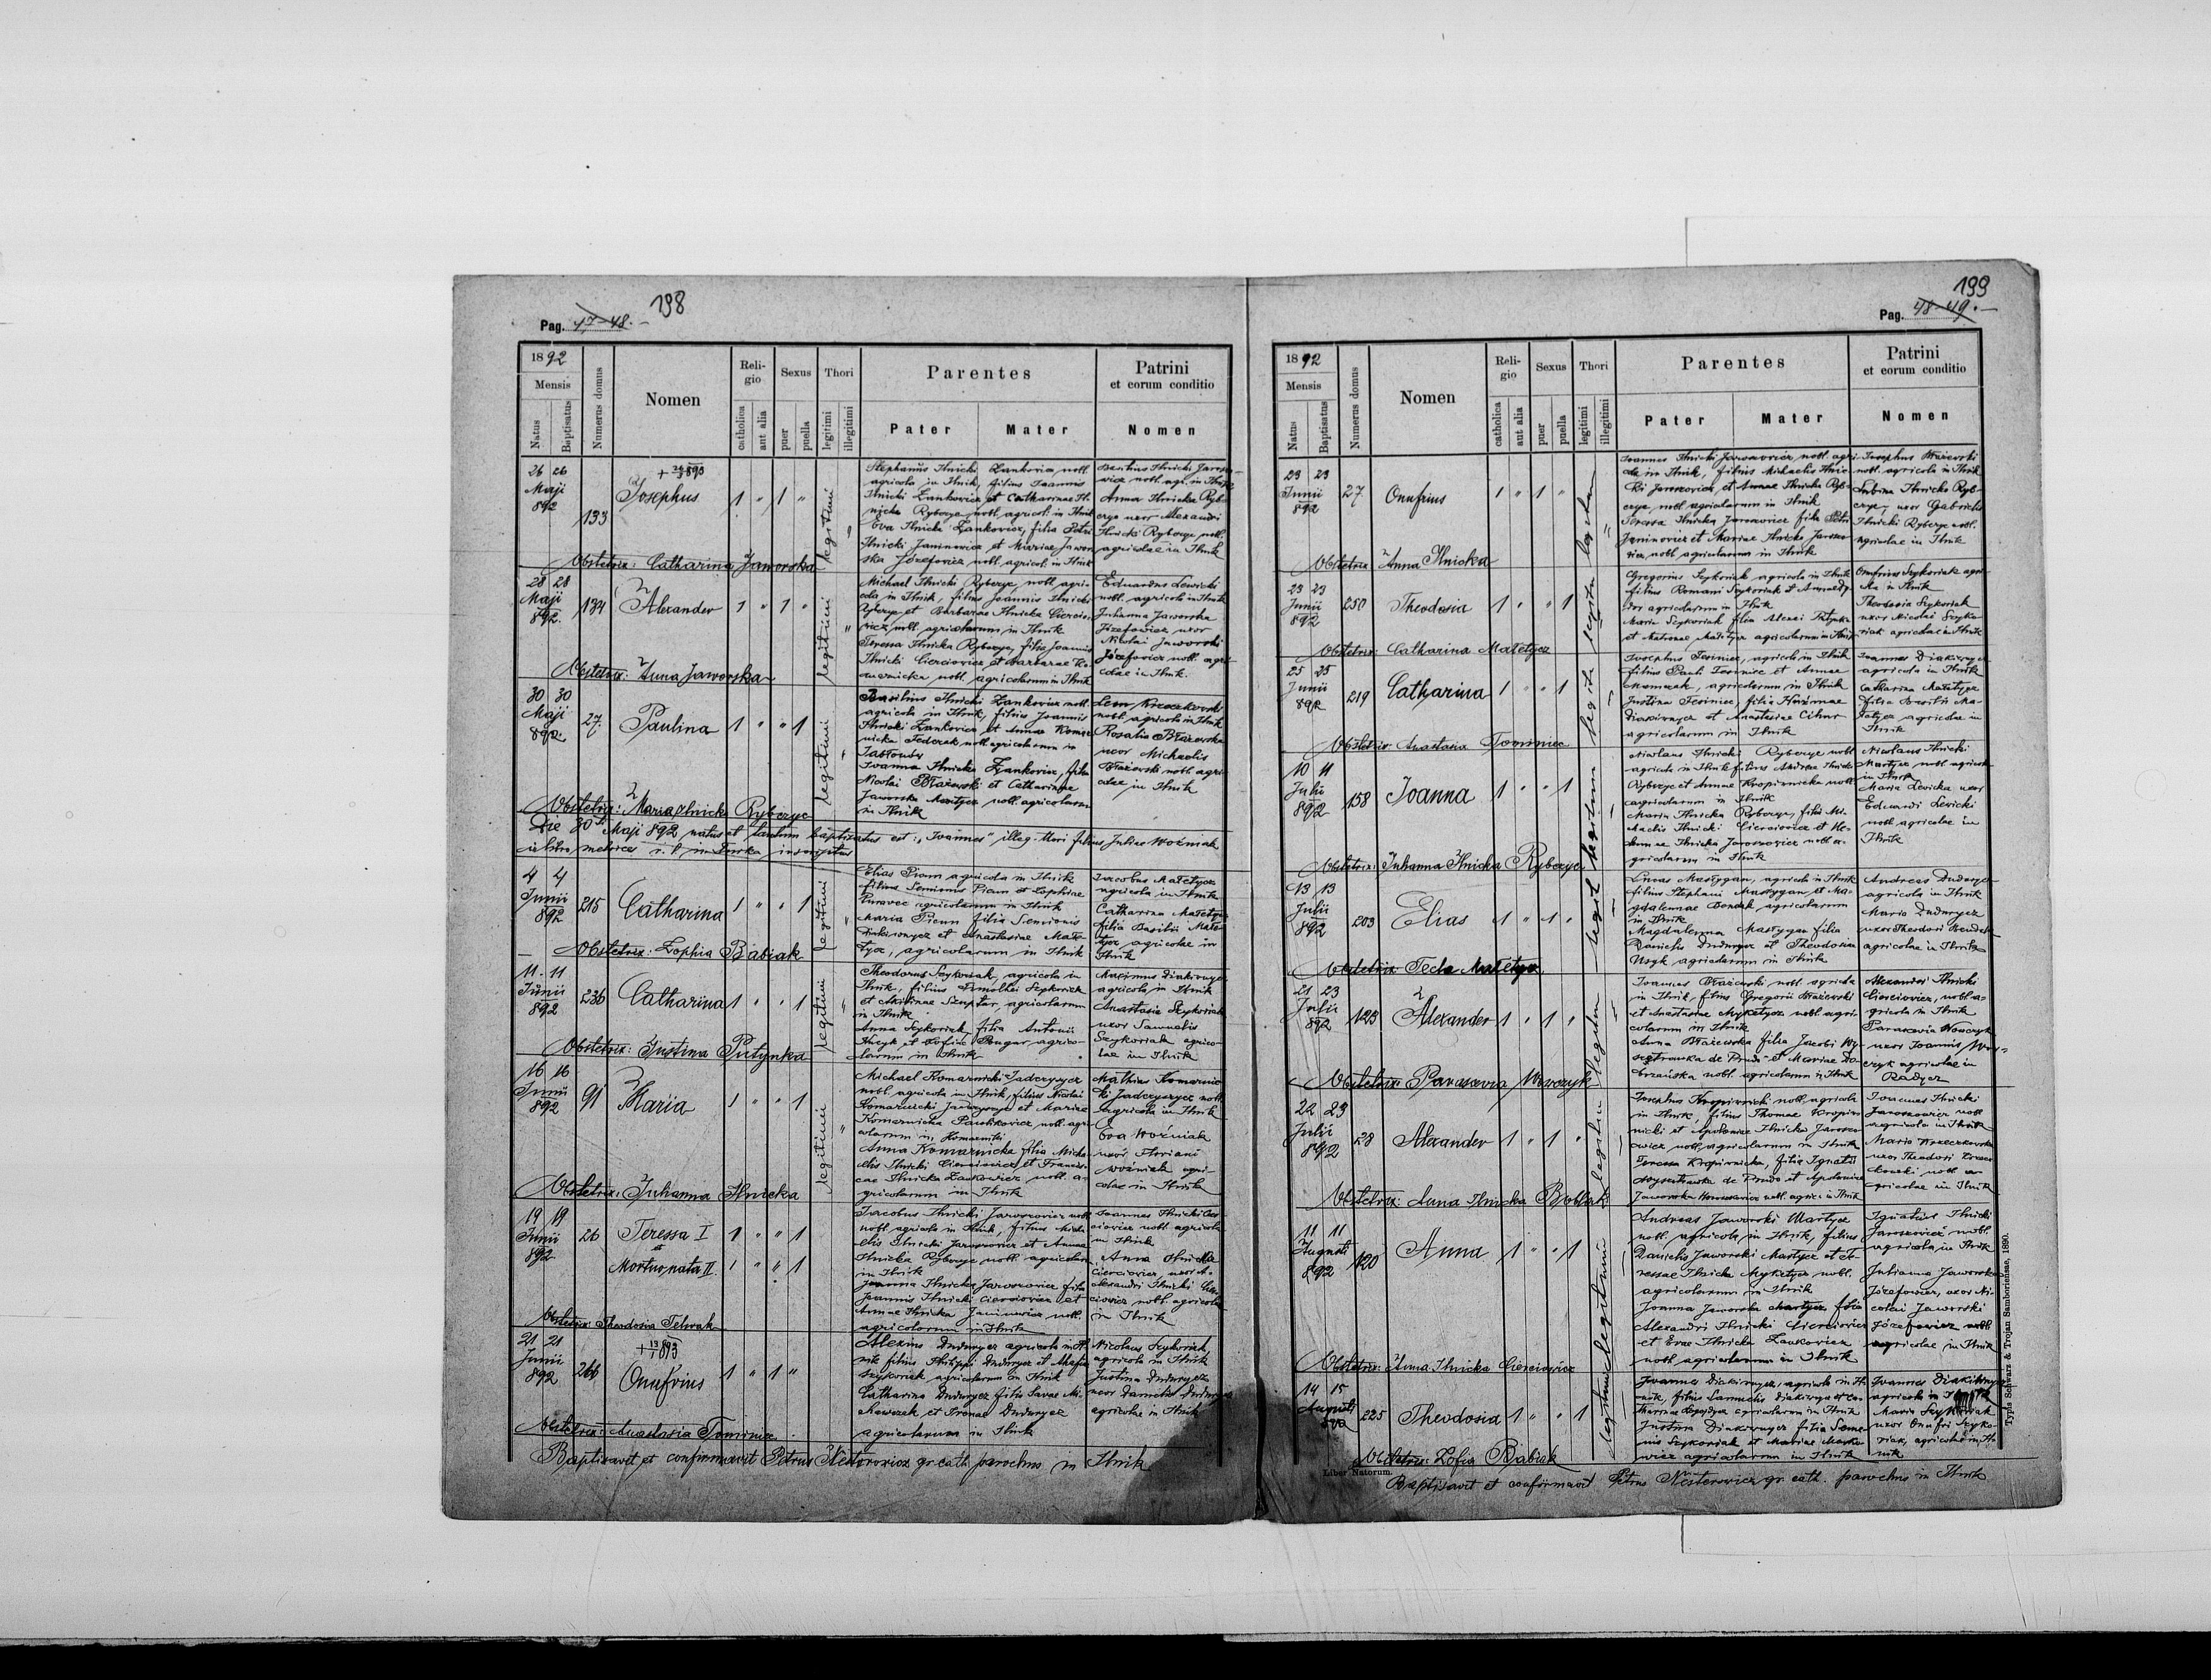 198
Pag. 47-48.
18 92
Mensis
Natus
Baptisatus
Numerus domus
Nomen
Religio
catholica
aut alia
Sexus
puer
puella
Thori
legitimi
illegitimi
Parentes
Pater
Mater
Patrini
et eorum conditio
Nomen
26 26
Maji
892
133
Josephus
1 " 1 "
legitimi
Stephanus Ilnicki Zankovicz nobl.
agricola in Ilnik, filius Joannis
Ilnicki Zankovicz et Catharinae Il-
nicka Rybczyc nobl. agricol. in Ilnik
Eva Ilnicka Zankovicz, filia Petri
Ilnicki Janinovicz et Mariae Jawor-
ska Józefovicz nobl. agricol. in Ilnik
Basilius Ilnicki Jaroso-
vicz nobl. agr. in Ilnik
Anna Ilnicka Ryb-
czyc uxor Alexandri
Ilnicki Rybczyc nobl.
agricolae in Ilnik
Obstetrix: Catharina Jaworska
28 28
Maji
892.
134
Alexander
1 " 1 "
legitimi
Michael Ilnicki Rybczyc nobl. agri-
cola in Ilnik, filius Joannis Ilnicki
Rybczyc et Barbarae Ilnicka Ciercio-
vicz nobl. agricolarum in Ilnik
Teressa Ilnicka Rybczyc, filia Joannis
Ilnicki Cierciovicz et Barbarae Ko-
marnicka nobl. agricolarum in Ilnik
Eduardus Lewicki
nobl. agricola in Ilnik
Julianna Jaworska
Józefowicz uxor
Nicolai Jaworski
Józefovicz nobl. agri-
colae in Ilnik.
Obstetrix: Anna Jaworska
30 30
Maji
892.
27.
Paulina
1 " " 1
legitimi
Basilius Ilnicki Zankovicz nobl.
agricola in Ilnik, filius Joannis
Ilnicki Zankovicz et Annae Komar-
nicka Federak nobl. agricolarum in
Jasłonów
Joanna Ilnicka Zankovicz, filia
Nicolai Błażowski et Catharinae
Jaworska Martycz nobl. agricolarum
in Ilnik
Leon Kreczkowski
nobl. agricola in Ilnik
Rosalia Błażowska
uxor Michaelis
Błażowski nobl. agri-
colae in Ilnik
Obstetrix: Maria Ilnicka Rybczyc
Die 30 Maji 892 natus et tantum baptisatus est: "Joannes" illeg. thori filius Juliae Woźniak
in libro metrices r. l. in Turka inscriptus
4 4
Junii
892
215
Catharina
1 " " 1
legitimi
Elias Picun agricola in Ilnik
filius Semionis Picun et Sophiae
Żuravec agricolarum in Ilnik
Maria Picun filia Semionis
Diakiwnycz et Anastasiae Małe-
tycz, agricolarum in Ilnik
Jacobus Małetycz
agricola in Ilnik
Catharina Małetycz
filia Basilii Małe-
tycz agricolae in
Ilnik
Obstetrix: Zophia Babiak
11. 11
Junii
892
236
Catharina
1 " " 1
legitimi
Theodorus Szykoriak, agricola in
Ilnik, filius Timothei Szykoriak
agricolarum
in Ilnik
Anna Szykoriak, filia Antonii
agrico-
larum in Ilnik
Maximus Diakiwnycz
agricola in Ilnik
Anastasia Szykoriak
uxor Samuelis
Szykoriak agrico-
lae in Ilnik
Obstetrix: Justina Putynka
16 16
Junii
892
91
Maria
1 " " 1
legitimi
Michael Komarnicki Jadczyszycz
nobl. agricola in Ilnik, filius Nicolai
Komarnicki Jadczyszycz et Mariae
Komarnicka Pawlikovicz nobl. agri-
colarum in Komarniki
Anna Komarnicka filia Micha-
elis Ilnicki Cierciovicz et Francis-
cae Ilnicka Zankowicz nobl. a-
gricolarum in Ilnik
Mathias Komarnic-
ki Jadczyszycz nobl.
agricola in Ilnik
Eva Woźniak
uxor Floriani
Woźniak agri-
colae in Ilnik
Obstetrix: Julianna Ilnicka
19 19
Junii
892
26
Teressa I
et
Mortuo nata II.
1 " " 1
1 " " 1
Jacobus Ilnicki Jarosovicz nobl.
nobl. agricola in Ilnik, filius Micha-
elis Ilnicki Jarosovicz et Annae
Ilnicka Rybczyc nobl. agricolarum
in Ilnik
Joanna Ilnicka Jarosovicz filia
Joannis Ilnicki Cierciovicz et
Annae Ilnicka Janinovicz nobl.
agricolarum in Ilnik
Joannes Ilnicki Cier-
ciovicz nobl. agricola
in Ilnik
Anna Ilnicka
Cierciovicz, uxor A-
lexandri Ilnicki Cier-
ciovicz nobl. agricolae
in Ilnik
Obstetrix: Theodosia Telwak
21 21
Junii
892
266
Onufrius
1 " 1 "
Alexius Dudurycz agricola in Il-
nik filius Philippi Dudurycz et
Szykoriak, agricolarum in Ilnik
Catharina Dudurycz, filia Savae Mi-
et Irenae Dudurycz
agricolarum in Ilnik
Nicolaus Szykoriak,
agricola in Ilnik
Justina Dudurycz
uxor Danielis Dudurycz
agricolae in Ilnik
Obstetrix: Anastasia Tominec
Baptisavit et confirmavit Petrus Nesterovicz gr. cath. parochus in Ilnik
199
Pag. 48-49.
18 92
Mensis
Natus
Baptisatus
Numerus domus
Nomen
Religio
catholica
aut alia
Sexus
puer
puella
Thori
legitimi
illegitimi
Parentes
Pater
Mater
Patrini
et eorum conditio
Nomen
23 23
Junii
892
27.
Onufrius
1 " 1 "
Joannes Ilnicki Jarosovicz nobl. agri-
cola in Ilnik, filius Michaelis Ilnic-
ki Jarosovicz, et Annae Ilnicka Ryb-
czyc, nobl. agricolarum in Ilnik
Teressa Ilnicka Jarosovicz filia Petri
Janinovicz et Mariae Ilnicka Jaroso-
vicz, nobl. agricolarum in Ilnik
Josephus Błażowski
nobl. agricola in Ilnik
Sabina Ilnicka Ryb-
czyc, uxor Gabrielis
Ilnicki Rybczyc nobl.
agricolae in Ilnik
Obstetrix Anna Ilnicka
23 23
Junii
892
250
Theodosia
1 " " 1
Gregorius Szykoriak agricola in Ilnik
filius Romani Szykoriak et
agricolarum in Ilnik
Maria Szykoriak filia Alexii Putynka
et Matronae Małetycz agricolarum in Ilnik
Onufrius Szykoriak agri-
cola in Ilnik
Theodosia Szykoriak
uxor Nicolai Szyko-
riak agricolae in Ilnik
Obstetrix: Catharina Małetycz
25 25
Junii
892
219
Catharina
1 " " 1
Josephus Tesiniec, agricola in Ilnik
filius Pauli Tesiniec et Annae
agricolarum in Ilnik
Justina Tesiniec, filia
Diakiwnycz et Anastasiae
agricolarum in Ilnik
Joannes Diakiwnycz
agricola in Ilnik
Catharina Małetycz
filia Basilii Ma-
łetycz agricolae in
Ilnik
Obstetrix: Anastasia Tominec
10 11
Julii
892
158
Joanna
1 " " 1
Nicolaus Ilnicki Rybczyc nobl.
agricola in Ilnik filius Andreae Ilnicki
Rybczyc et Annae Kropiwnicka nobl.
agricolarum in Ilnik
Maria Ilnicka Rybczyc, filia Mi-
chaelis Ilnicki Cierciovicz et He-
lenae Ilnicka Jarosovicz nobl. a-
gricolarum in Ilnik
Nicolaus Ilnicki
Martycz nobl. agricola
in Ilnik
Maria Levicka uxor
Eduardi Levicki
nobl. agricolae in
Ilnik
Obstetrix: Julianna Ilnicka Rybczyc
13 13
Julii
892
203
Elias
1 " 1 "
Lucas Mastygan, agricola in Ilnik
filius Stephani Mastygan et Ma-
gdalenae Bendak agricolarum
in Ilnik
Magdalenna Mastygan filia
Danielis Dudurycz et Theodosiae
Usyk agricolarum in Ilnik
Andreas Dudurycz
agricola in Ilnik
Maria Dudurycz
uxor Theodori
agricolae in Ilnik
Obstetrix Tecla Małetycz
21 23
Julii
892
123
Alexander
1 " 1 "
Joannes Błażowski nobl. agricola
in Ilnik, filius Gregorii Błażowski
et Anastasiae Mykietycz nobl. agri-
colarum in Ilnik
Anna Błażowska filia Jacobi Wy-
de et Mariae
nobl. agricolarum in Ilnik
Alexander Ilnicki
Cierciovicz, nobl. a-
gricola in Ilnik
Parascevia Wowczyk
uxor Joannis Wow-
czyk agricolae in
Radycz
Obstetrix Parascevia Wowczyk
22 23
Julii
892
28
Alexander
1 " 1 "
Josephus Kropiwnicki nobl. agricola
in Ilnik filius Thomae Kropiw-
nicki et Apoloniae Ilnicka Jaroso-
wicz nobl. agricolarum in Ilnik
Teressa Kropiwnicka, filia Ignatii
de et Apoloniae
Jaworska nobl. agric. in Ilnik
Joannes Ilnicki
Jarosovicz nobl.
agricola in Ilnik
Maria Kreczkowska
uxor Theodori Krecz-
kowski nobl. a-
gricolae in Ilnik
Obstetrix Anna Ilnicka
11 11
Augusti
892
120
Anna
1 " " 1
Andreas Jaworski Martycz
nobl. agricola, in Ilnik, filius
Danielis Jaworski Martycz et Te-
ressae Ilnicka Mykietycz nobl.
agricolarum in Ilnik
Joanna Jaworska Martycz filia
Alexandri Ilnicki Cierciovicz
et Evae Ilnicka Zankovicz
nobl. agricolarum in Ilnik
Ignatius Ilnicki
Jarosovicz nobl.
agricola in Ilnik
Julianna Jaworska
Józefowicz, uxor Ni-
colai Jaworski
Józefowicz nobl.
agricolae in Ilnik
Obstetrix: Anna Ilnicka Cierciovicz
14 15
Augusti
225
Theodosia
1 " " 1
Joannes Diakiwnycz agricola in Il-
nik, filius Samuelis Diakiwnycz et Ca-
tharinae agricolarum in Ilnik
Justina Diakiwnycz filia Semio-
nis Szykoriak et Mariae
agricolarum in Ilnik
Joannes Diakiwnycz
agricola in Ilnik
Maria Szykoriak
uxor Onufri Szyko-
riak, agricolae in Il-
nik
Obstetrix: Zofia Babiak
Liber Natorum.
Baptisavit et confirmavit Petrus Nesterowicz gr. cath. parochus in Ilnik
Typis Schwarz & Trojan Samboriensae, 1890.